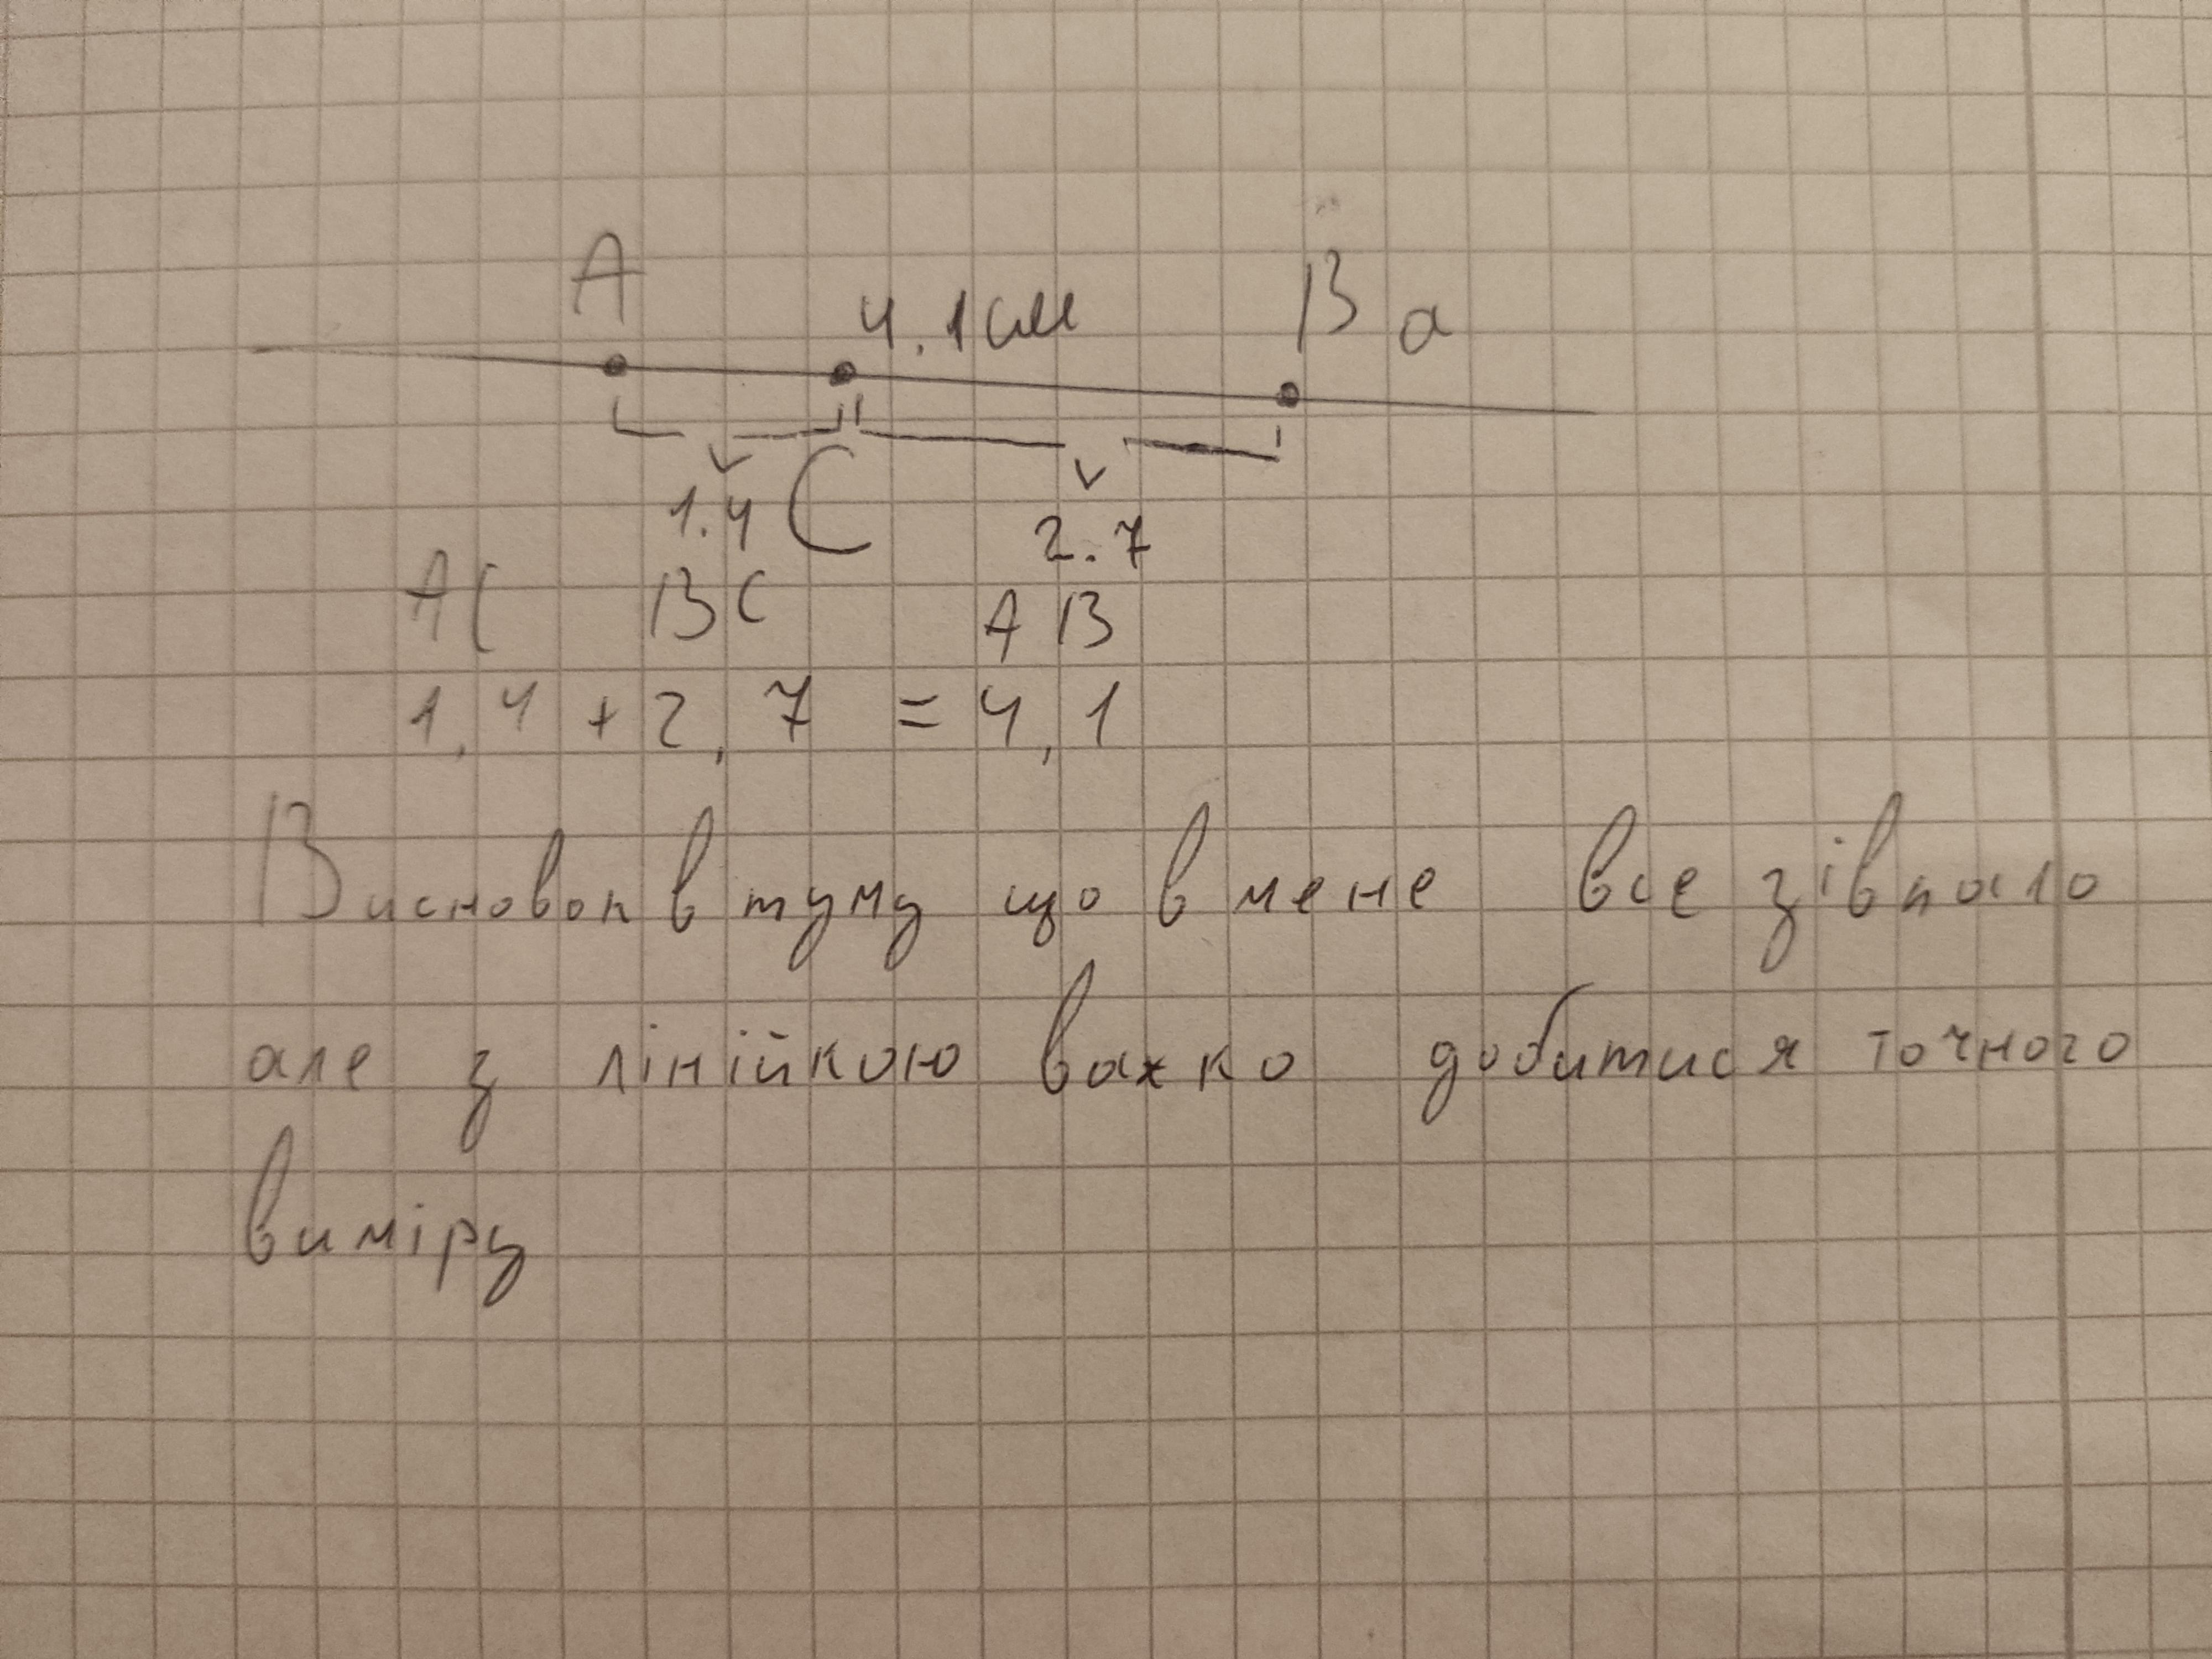 A
4.1 см
B a
1.4 C 2.7
AC BC AB
1,4 + 2,7 = 4,1
Висновок в туму що в мене все зівпало
але з лінійкою важко добитися точного
виміру